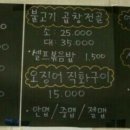 불고기 곱창전골
소 : 25.000
대 : 35.000
셀프볶음밥 1.500
오징어 직화구이
15.000
안맵 / 중맵 / 절맵